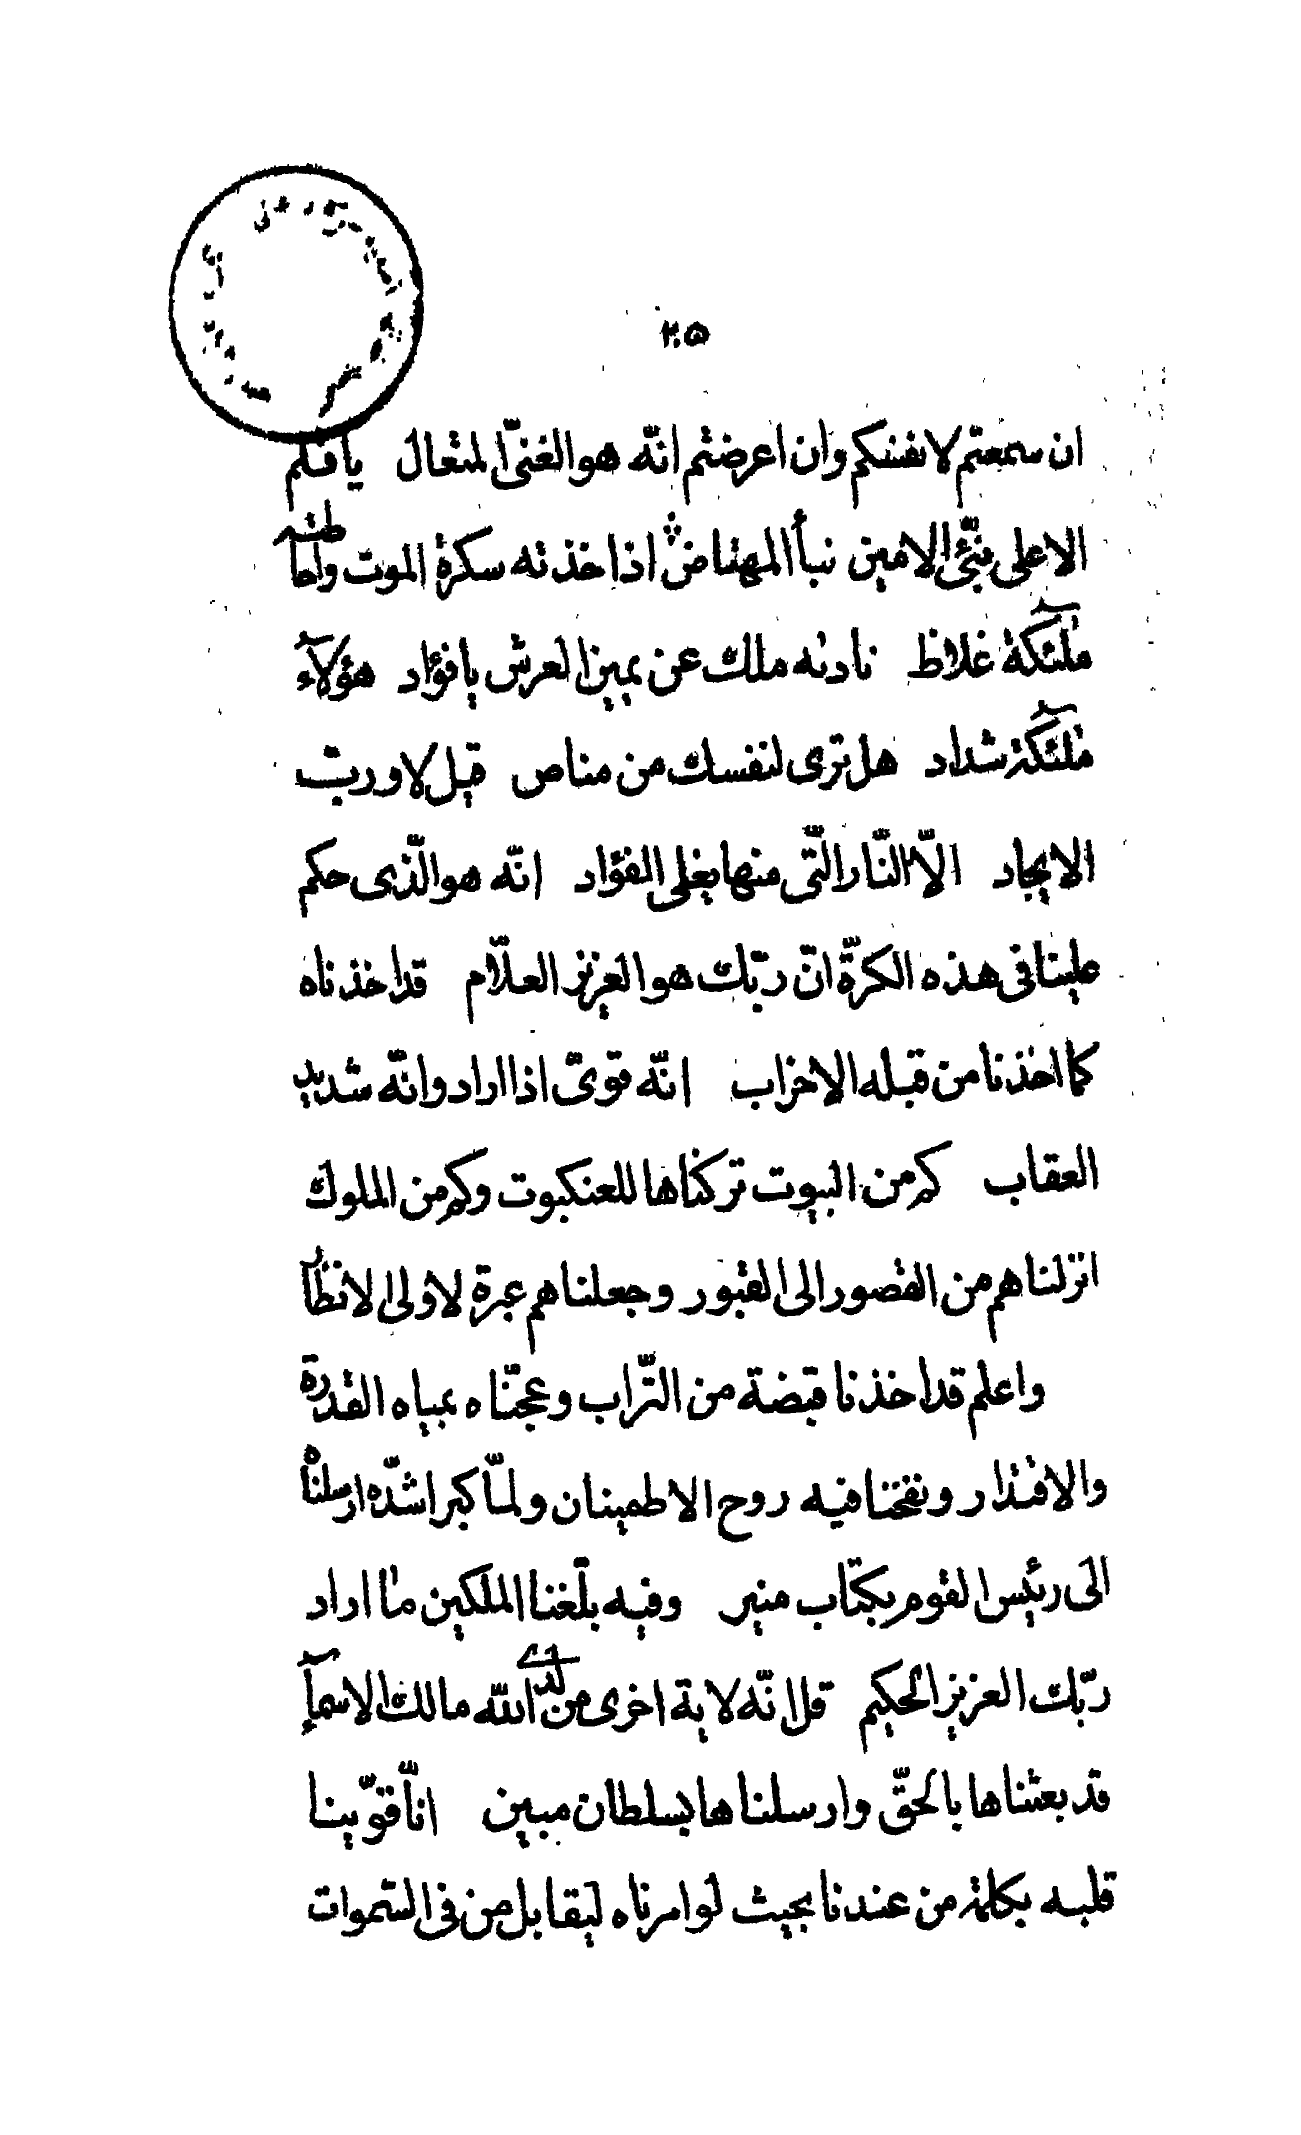 ٢٠٥
ان سمعتم لانفسكم وان اعرضتم انّه هو الغنىّ المتعال يا قلم
الاعلى نبّئ الامين نبأ المهتاض اذ اخذته سكرة الموت واحاطته
ملئكة غلاظ نادته ملك عن يمين العرش يا فؤاد هؤلآء
ملئكة شداد هل ترى لنفسك من مناص قيل لا و ربّ
الايجاد الّا النّار الّتى منها يغلى الفؤاد انّه هو الّذى حكم
علينا فى هذه الكرّة انّ ربّك هو العزيز العلّام قد اخذناه
كما اخذنا من قبله الاحزاب انّه قوىّ اذا اراد وانّه شديد
العقاب كم من البيوت تركناها للعنكبوت وكم من الملوك
انزلناهم من القصور الى القبور وجعلناهم عبرة لاولى الانظار
واعلم قد اخذنا قبضة من التّراب وعجنّاه بمياه القدرة
والاقتدار ونفخنا فيه روح الاطمينان ولمّا كبر اشدّه ارسلناه
الى رئيس القوم بكتاب منير وفيه بلّغنا الملكين ما اراد
ربّك العزيز الحكيم قل انّه لاية اخرى من لدى الله مالك الاسمآء
قد بعثناها بالحقّ وارسلناها بسلطان مبين انّا قوّينا
قلبه بكلمة من عندنا بحيث لو امرناه ليقابل من فى السّموات